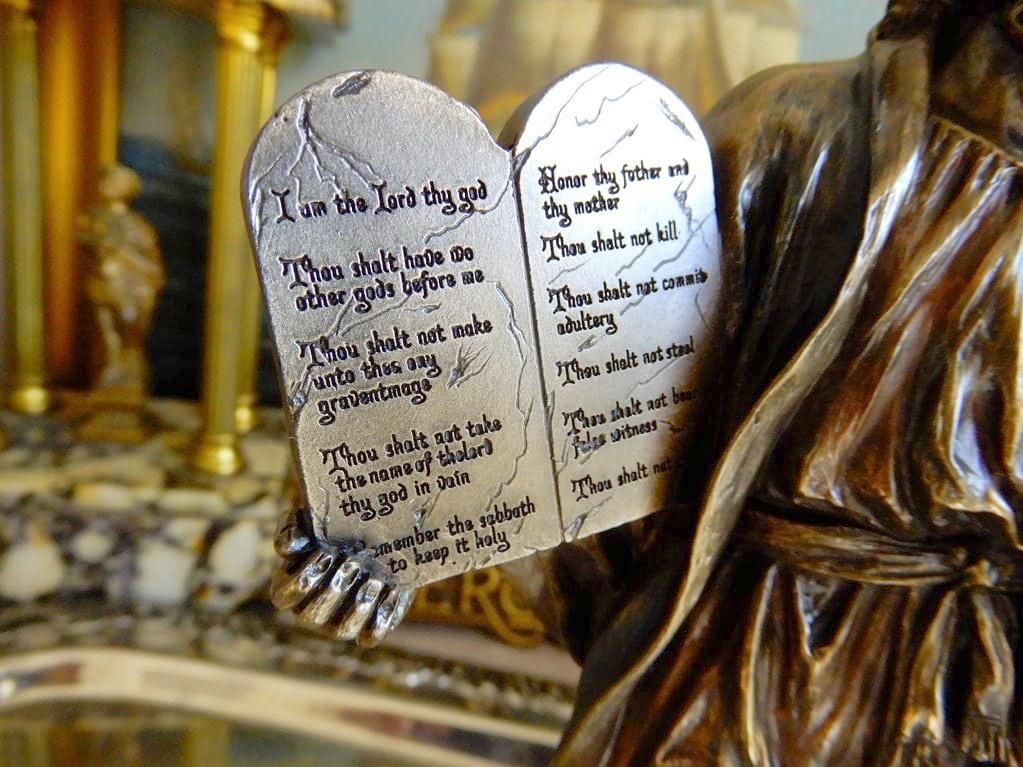 I am the Lord thy god
Thou shalt have no
other gods before me
Thou shalt not make
unto thee any
graventmage
Thou shalt not take
the name of thelord
thy god in vain
member the sabbath
to keep it holy
Honor thy father and
thy mother
Thou shalt not kill
Thou shalt not commit
adultery
Thou shalt not steal
Thou shalt not bea
false witness
Thou shalt not